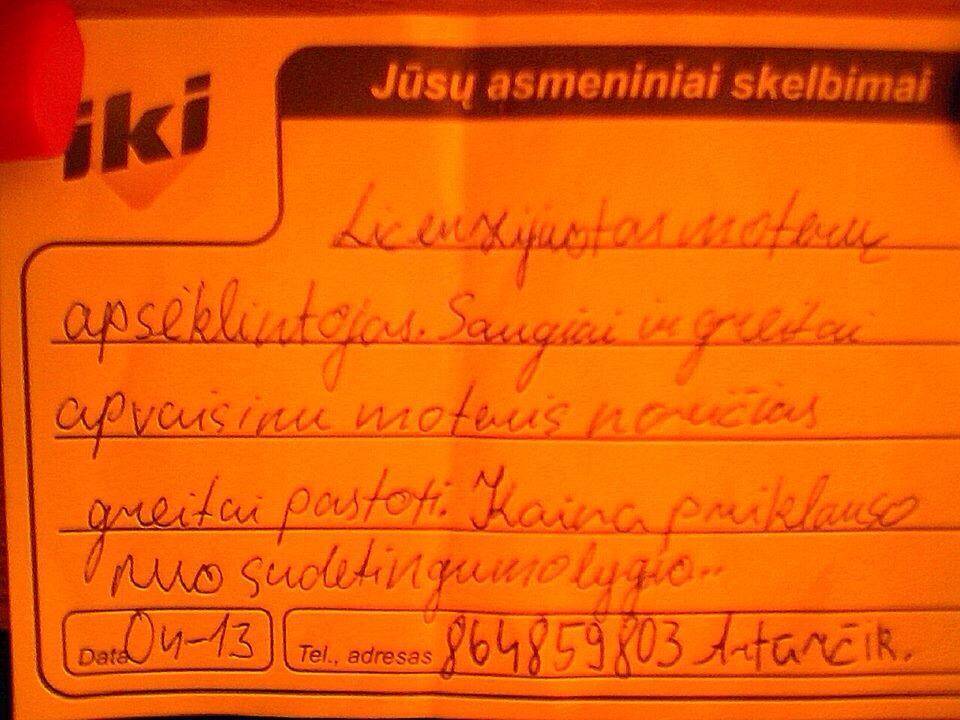 iki
Jūsų asmeniniai skelbimai
Licenzijuotas moterų
apsėklintojas. Saugiai ir greitai
apvaisinu moteris norinčias
greitai pastoti. Kaina priklauso
nuo sudėtingumo lygio..
Data 04-13
Tel., adresas 864859803 Arturčik.